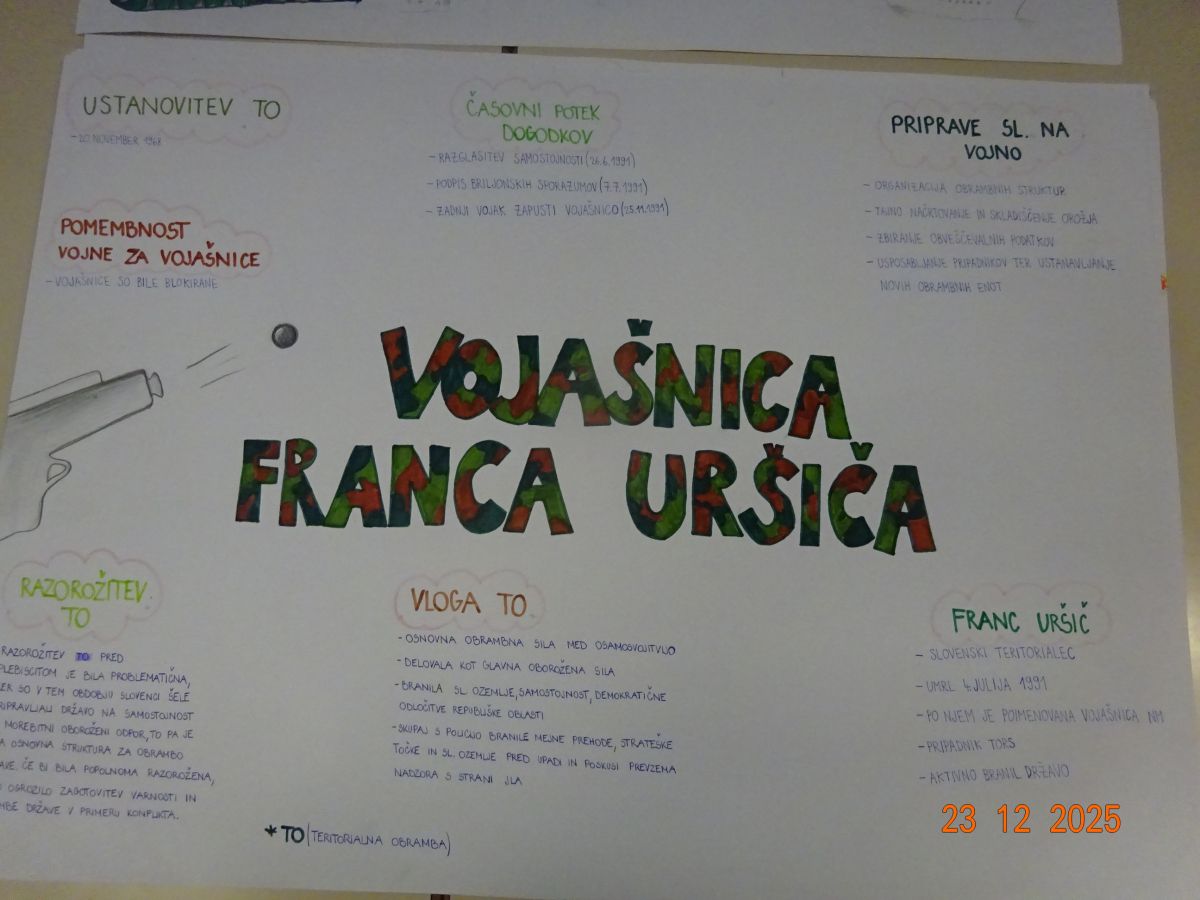 USTANOVITEV TO
- 20. NOVEMBER 1968
ČASOVNI POTEK
DOGODKOV
- RAZGLASITEV SAMOSTOJNOSTI (26.6.1991)
- PODPIS BRILJONSKIH SPORAZUMOV (7.7.1991)
- ZADNJI VOJAK ZAPUSTI VOJAŠNICO (25.11.1991)
PRIPRAVE SL. NA
VOJNO
- ORGANIZACIJA OBRAMBNIH STRUKTUR
- TAJNO NAČRTOVANJE IN SKLADIŠČENJE OROŽJA
- ZBIRANJE OBVEŠČEVALNIH PODATKOV
- USPOSABLJANJE PRIPADNIKOV TER USTANAVLJANJE
NOVIH OBRAMBNIH ENOT
POMEMBNOST
VOJNE ZA VOJAŠNICE
- VOJAŠNICE SO BILE BLOKIRANE
VOJAŠNICA
FRANCA URŠIČA
RAZOROŽITEV
TO
RAZOROŽITEV TO PRED
PLEBISCITOM JE BILA PROBLEMATIČNA,
KER SO V TEM OBDOBJU SLOVENCI ŠELE
PRIPRAVLJALI DRŽAVO NA SAMOSTOJNOST
MOREBITNI OBOROŽENI ODPOR, TO PA JE
OSNOVNA STRUKTURA ZA OBRAMBO
ČE BI BILA POPOLNOMA RAZOROŽENA,
OGROZILO ZAGOTOVITEV VARNOSTI IN
DRŽAVE V PRIMERU KONFLIKTA.
VLOGA TO
- OSNOVNA OBRAMBNA SILA MED OSAMOSVOJITVIJO
- DELOVALA KOT GLAVNA OBOROŽENA SILA
- BRANILA SL. OZEMLJE, SAMOSTOJNOST, DEMOKRATIČNE
ODLOČITVE REPUBLIŠKE OBLASTI
- SKUPAJ S POLICIJO BRANILE MEJNE PREHODE, STRATEŠKE
TOČKE IN SL. OZEMLJE PRED UPADI IN POSKUSI PREVZEMA
NADZORA S STRANI JLA
FRANC URŠIČ
- SLOVENSKI TERITORIALEC
- UMRL 4. JULIJA 1991
- PO NJEM JE POIMENOVANA VOJAŠNICA NM
- PRIPADNIK TORS
- AKTIVNO BRANIL DRŽAVO
* TO (TERITORIALNA OBRAMBA)
23 12 2025